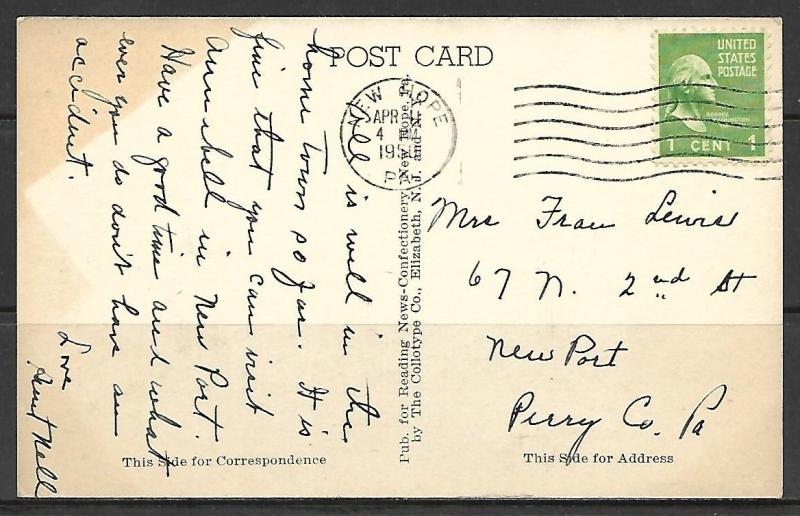 POST CARD
UNITED
STATES
POSTAGE
GEORGE
WASHINGTON
1 CENT 1
NEW HOPE
APR
4 PM
19
PA.
All is well in the
home town so far. It is
fine that you can visit
Aunshell in New Port.
Have a good time and what
ever you do don't have an
accident.
Love
Aunt Nell
Pub. for Reading News-Confectionery, New Hope, Pa.
by The Collotype Co., Elizabeth, N. J. and N. Y.
Mrs Fran Lewis
67 N. 2nd St
New Port
Perry Co. Pa
This Side for Correspondence
This Side for Address